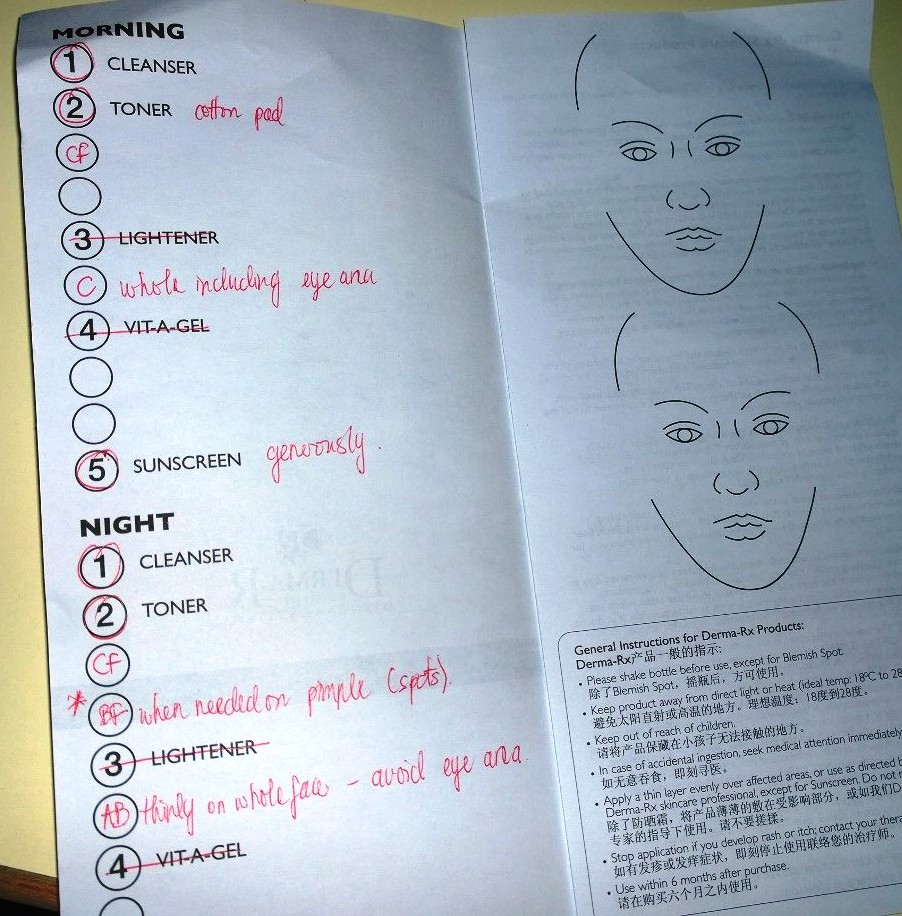 MORNING
1 CLEANSER
2 TONER cotton pad
CF
3 LIGHTENER
C whole including eye area
4 VIT-A-GEL
5 SUNSCREEN generously.
NIGHT
1 CLEANSER
2 TONER
CF
* BF when needed on pimple (spots).
3 LIGHTENER
AB thinly on whole face - avoid eye area.
4 VIT-A-GEL
General Instructions for Derma-Rx Products:
Derma-Rx产品一般的指示:
• Please shake bottle before use, except for Blemish Spot.
除了Blemish Spot，摇瓶后，方可使用。
• Keep product away from direct light or heat (ideal temp: 18°C to 28
避免太阳直射或高温的地方。理想温度：18度到28度。
• Keep out of reach of children.
请将产品保藏在小孩子无法接触的地方。
• In case of accidental ingestion, seek medical attention immediately
如无意吞食，即刻寻医。
• Apply a thin layer evenly over affected areas, or use as directed b
Derma-Rx skincare professional, except for Sunscreen. Do not r
除了防晒霜，将产品薄薄的敷在受影响部分，或如我们D
专家的指导下使用。请不要搓揉。
• Stop application if you develop rash or itch; contact your thera
如有发疹或发痒症状，即刻停止使用联络您的治疗师。
• Use within 6 months after purchase.
请在购买六个月之内使用。